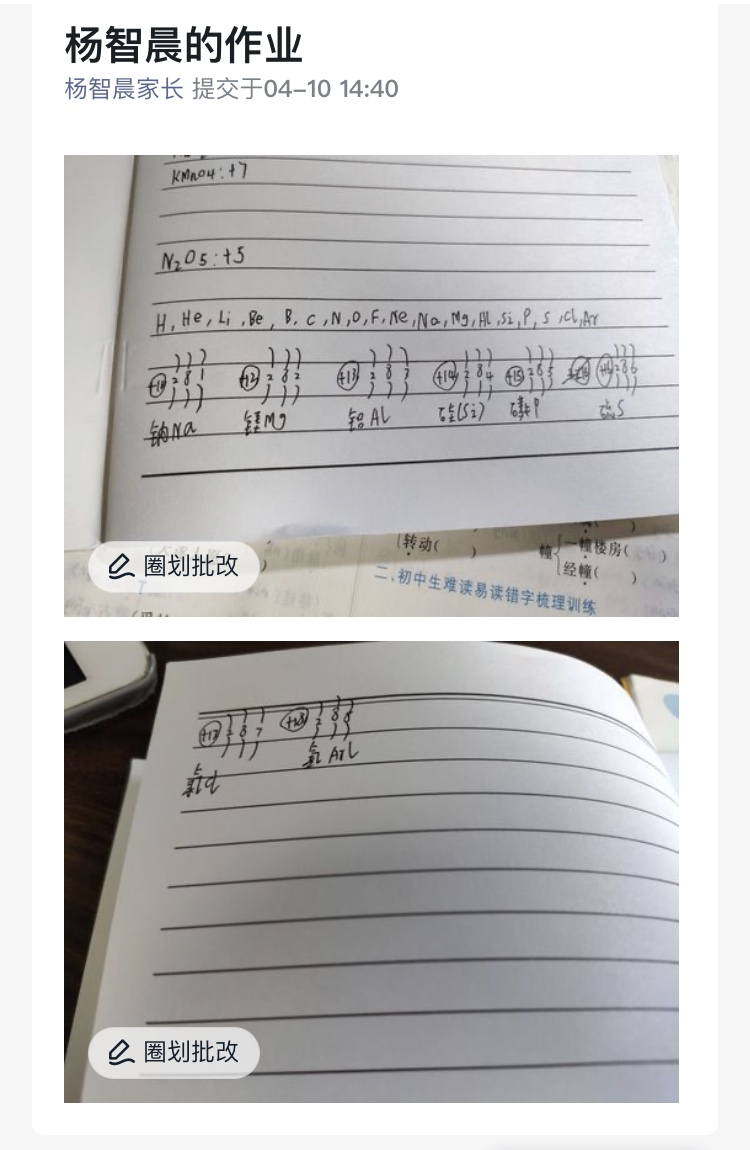 杨智晨的作业
杨智晨家长 提交于04-10 14:40
KMnO4:+7
N2O5:+5
H, He, Li, Be, B, C, N, O, F, Ne, Na, Mg, Al, Si, P, S, Cl, Ar
+11 2 8 1 +12 2 8 2 +13 2 8 3 +14 2 8 4 +15 2 8 5 +16 2 8 6
钠Na 镁Mg 铝Al 硅(Si) 磷P 硫S
转动( )
幢
一幢楼房( )
经幢( )
二、初中生难读易读错字梳理训练
圈划批改
+17 2 8 7 +18 2 8 8
氯Cl
圈划批改